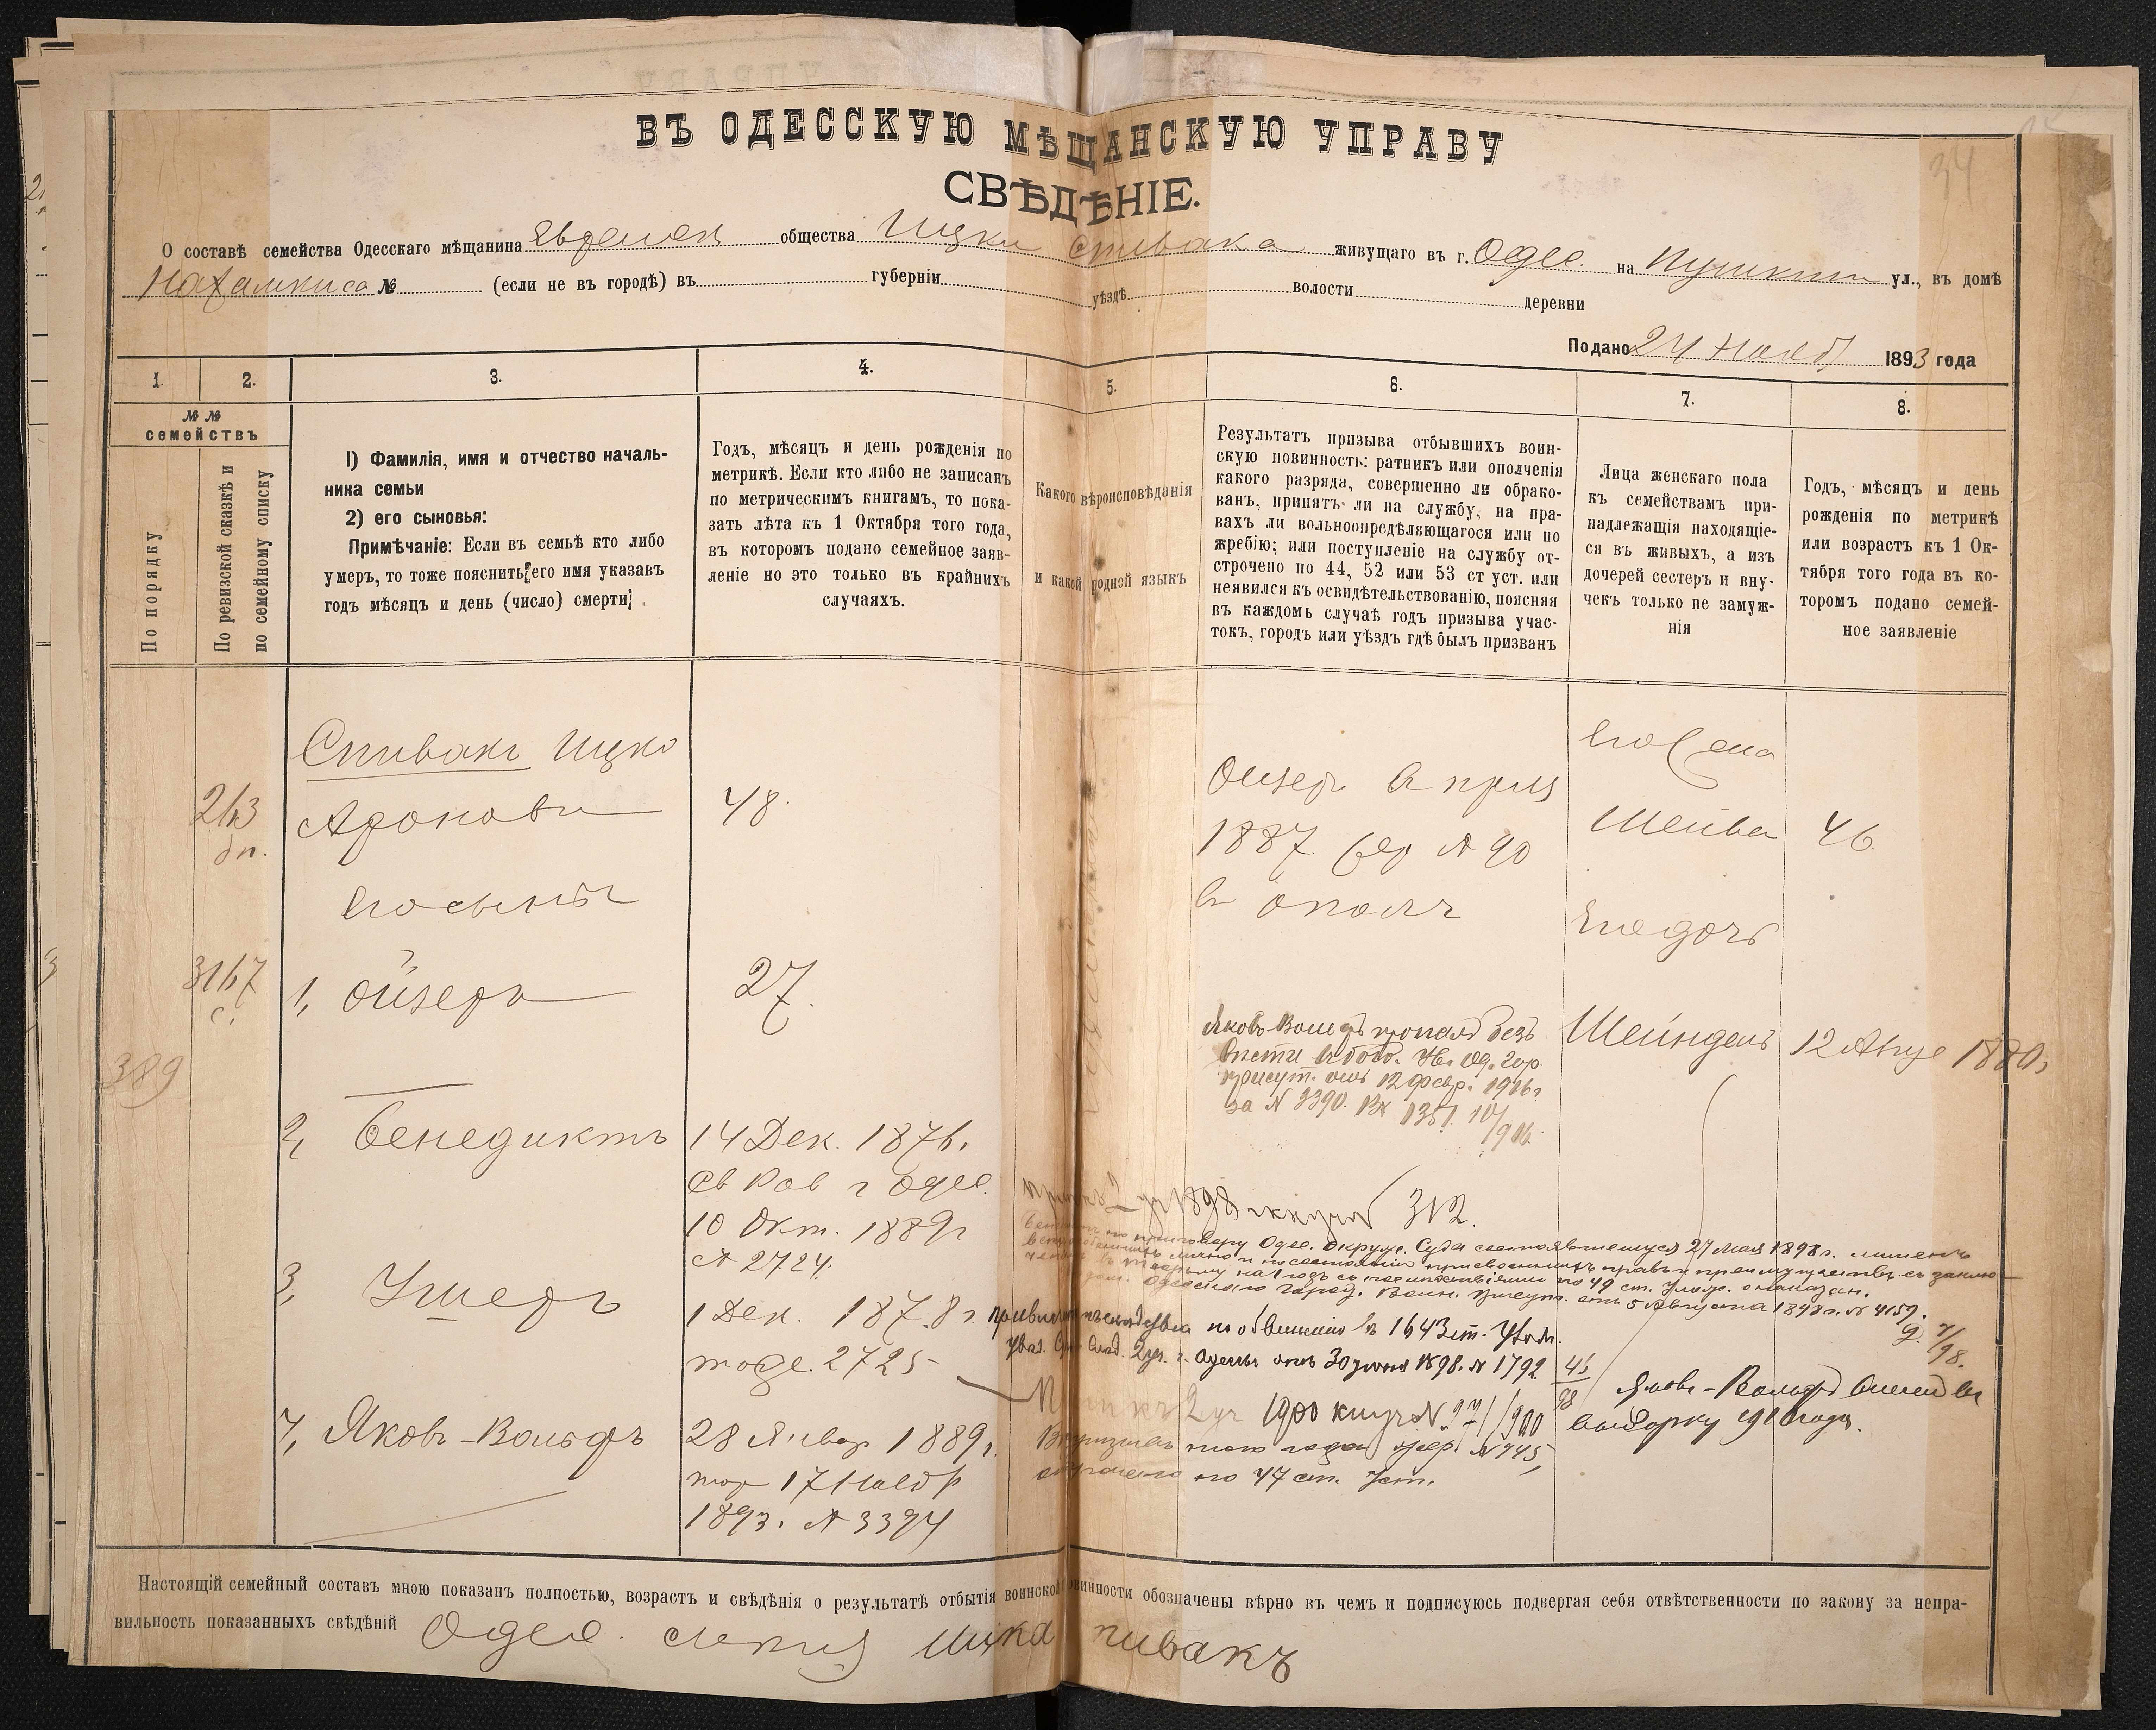 34
ВЪ ОДЕССКУЮ МѢЩАНСКУЮ УПРАВУ
СВѢДѢНІЕ.
О составѣ семейства Одесскаго мѣщанина Евреиск общества Ицки Спивака живущаго въ г. Одес. на Пушкин ул., въ домѣ
Нахамкиса № (если не въ городѣ) въ губерніи уѣздѣ волости деревни
Подано 24 Нояб 1893 года
1. 2. 3. 4. 5. 6. 7. 8.
№ № семействъ
По порядку
По ревизской сказкѣ и по семейному списку
1) Фамилія, имя и отчество началь-
ника семьи
2) его сыновья:
Примѣчаніе: Если въ семьѣ кто либо
умеръ, то тоже пояснить его имя указавъ
годъ мѣсяцъ и день (число) смерти
Годъ, мѣсяцъ и день рожденія по
метрикѣ. Если кто либо не записанъ
по метрическимъ книгамъ, то пока-
зать лѣта къ 1 Октября того года,
въ которомъ подано семейное заяв-
леніе но это только въ крайнихъ
случаяхъ.
Какого вѣроисповѣданія
и какой родной языкъ
Результатъ призыва отбывшихъ воин-
скую повинность: ратникъ или ополченія
какого разряда, совершенно ли обрако-
ванъ, принятъ ли на службу, на пра-
вахъ ли вольноопредѣляющагося или по
жребію; или поступленіе на службу от-
строчено по 44, 52 или 53 ст уст. или
неявился къ освидѣтельствованію, поясняя
въ каждомъ случаѣ годъ призыва учас-
токъ, городъ или уѣздъ гдѣ былъ призванъ
Лица женскаго пола
къ семействамъ при-
надлежащія находящіе-
ся въ живыхъ, а изъ
дочерей сестеръ и вну-
чекъ только не замуж-
нія
Годъ, мѣсяцъ и день
рожденія по метрикѣ
или возрастъ къ 1 Ок-
тября того года въ ко-
торомъ подано семей-
ное заявленіе
Спивакъ Ицко
263
дп.
Аронови 48.
его сыновья
3167
с.
1, Ойзеръ 27.
389
2, Бенедиктъ 14 Дек. 1876.
св Рав г Одес.
10 Окт. 1889 г
№ 2724.
3, Ушеръ
1 Дек. 1878 г.
тоже. 2725
4, Яковъ-Вольфъ 28 Январ 1889 г.
17 Нояб
1893. № 3394
Ойзер в приз
1887. № 90
в ополч
Яковъ-Вольфъ пропалъ безъ
вести
присут. отъ 12 Февр. 1916 г
за № 2390. Вх 1351.
312.
приговору Одес. Окруж. Суда состоявшемуся 27 Мая 1898 г. лишенъ
на 1 годъ съ послѣдствіями по 49 ст. Улож. о наказан.
Одесскаго Город. Воин. Присут. отъ 5 Августа 1898 г. № 4159.
по обвиненію въ 1643 ст. Улож.
Суд. Слѣд. 2 уч. г. Одессы отъ 30 Іюня 1898. № 1792
1900
того года жер. № 745,
по 47 ст. Уст.
его жена
Шейва 46
Его дочь
Шейндель 12 Авгус 1880 г
Яковъ-Вольфъ
выборку 1910 года.
Настоящій семейный составъ мною показанъ полностью, возрастъ и свѣдѣнія о результатѣ отбытія воинской повинности обозначены вѣрно въ чемъ и подписуюсь подвергая себя отвѣтственности по закону за непра-
вильность показанныхъ свѣдѣній Одес. Ицка пивакъ